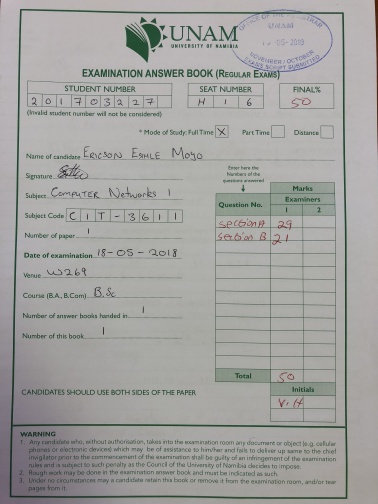 UNAM
UNIVERSITY OF NAMIBIA
OFFICE OF THE REGISTRAR
UNAM
-05- 2019
NOVEMBER / OCTOBER
EXAMS SCRIPT SUBMITTED
EXAMINATION ANSWER BOOK (REGULAR EXAMS)
STUDENT NUMBER SEAT NUMBER FINAL%
201703227 H16 50
(Invalid student number will not be considered)
* Mode of Study: Full Time X Part Time Distance
Name of candidate ERICSON ESHLE MOYO
Signature
Enter here the
Numbers of the
questions answered
Subject COMPUTER NETWORKS 1
Marks
Question No. Examiners
1 2
Subject Code CIT-3611
Section A 29
Number of paper 1
Section B 21
Date of examination 18-05-2018
Venue W269
Course (B.A., B.Com) B.Sc
Number of answer books handed in 1
Number of this book 1
Total 50
CANDIDATES SHOULD USE BOTH SIDES OF THE PAPER
Initials
V.H
WARNING
1. Any candidate who, without authorisation, takes into the examination room any document or object (e.g. cellular
phones or electronic devices) which may be of assistance to him/her and fails to deliver up same to the chief
invigilator prior to the commencement of the examination shall be guilty of an infringement of the examination
rules and is subject to such penalty as the Council of the University of Namibia decides to impose.
2. Rough work may be done in the examination answer book and must be indicated as such.
3. Under no circumstances may a candidate retain this book or remove it from the examination room, and/or tear
pages from it.